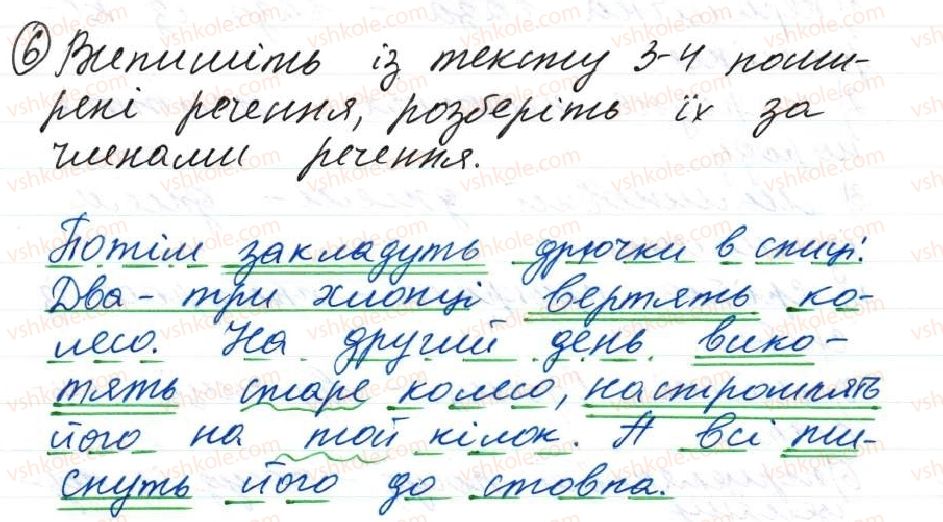 6 Випишіть із тексту 3-4 поши-
рені речення, розберіть їх за
членами речення.
Потім закладуть дрючки в спиці.
Два-три хлопці вертять ко-
лесо. На другий день вико-
тять старе колесо, настромлять
його на той кілок. А всі ти-
снуть його до стовпа.